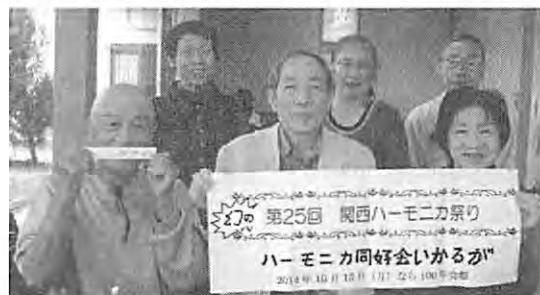 幻の 第25回 関西ハーモニカ祭り
ハーモニカ同好会いかるが
2014年10月13日（月）なら100年会館